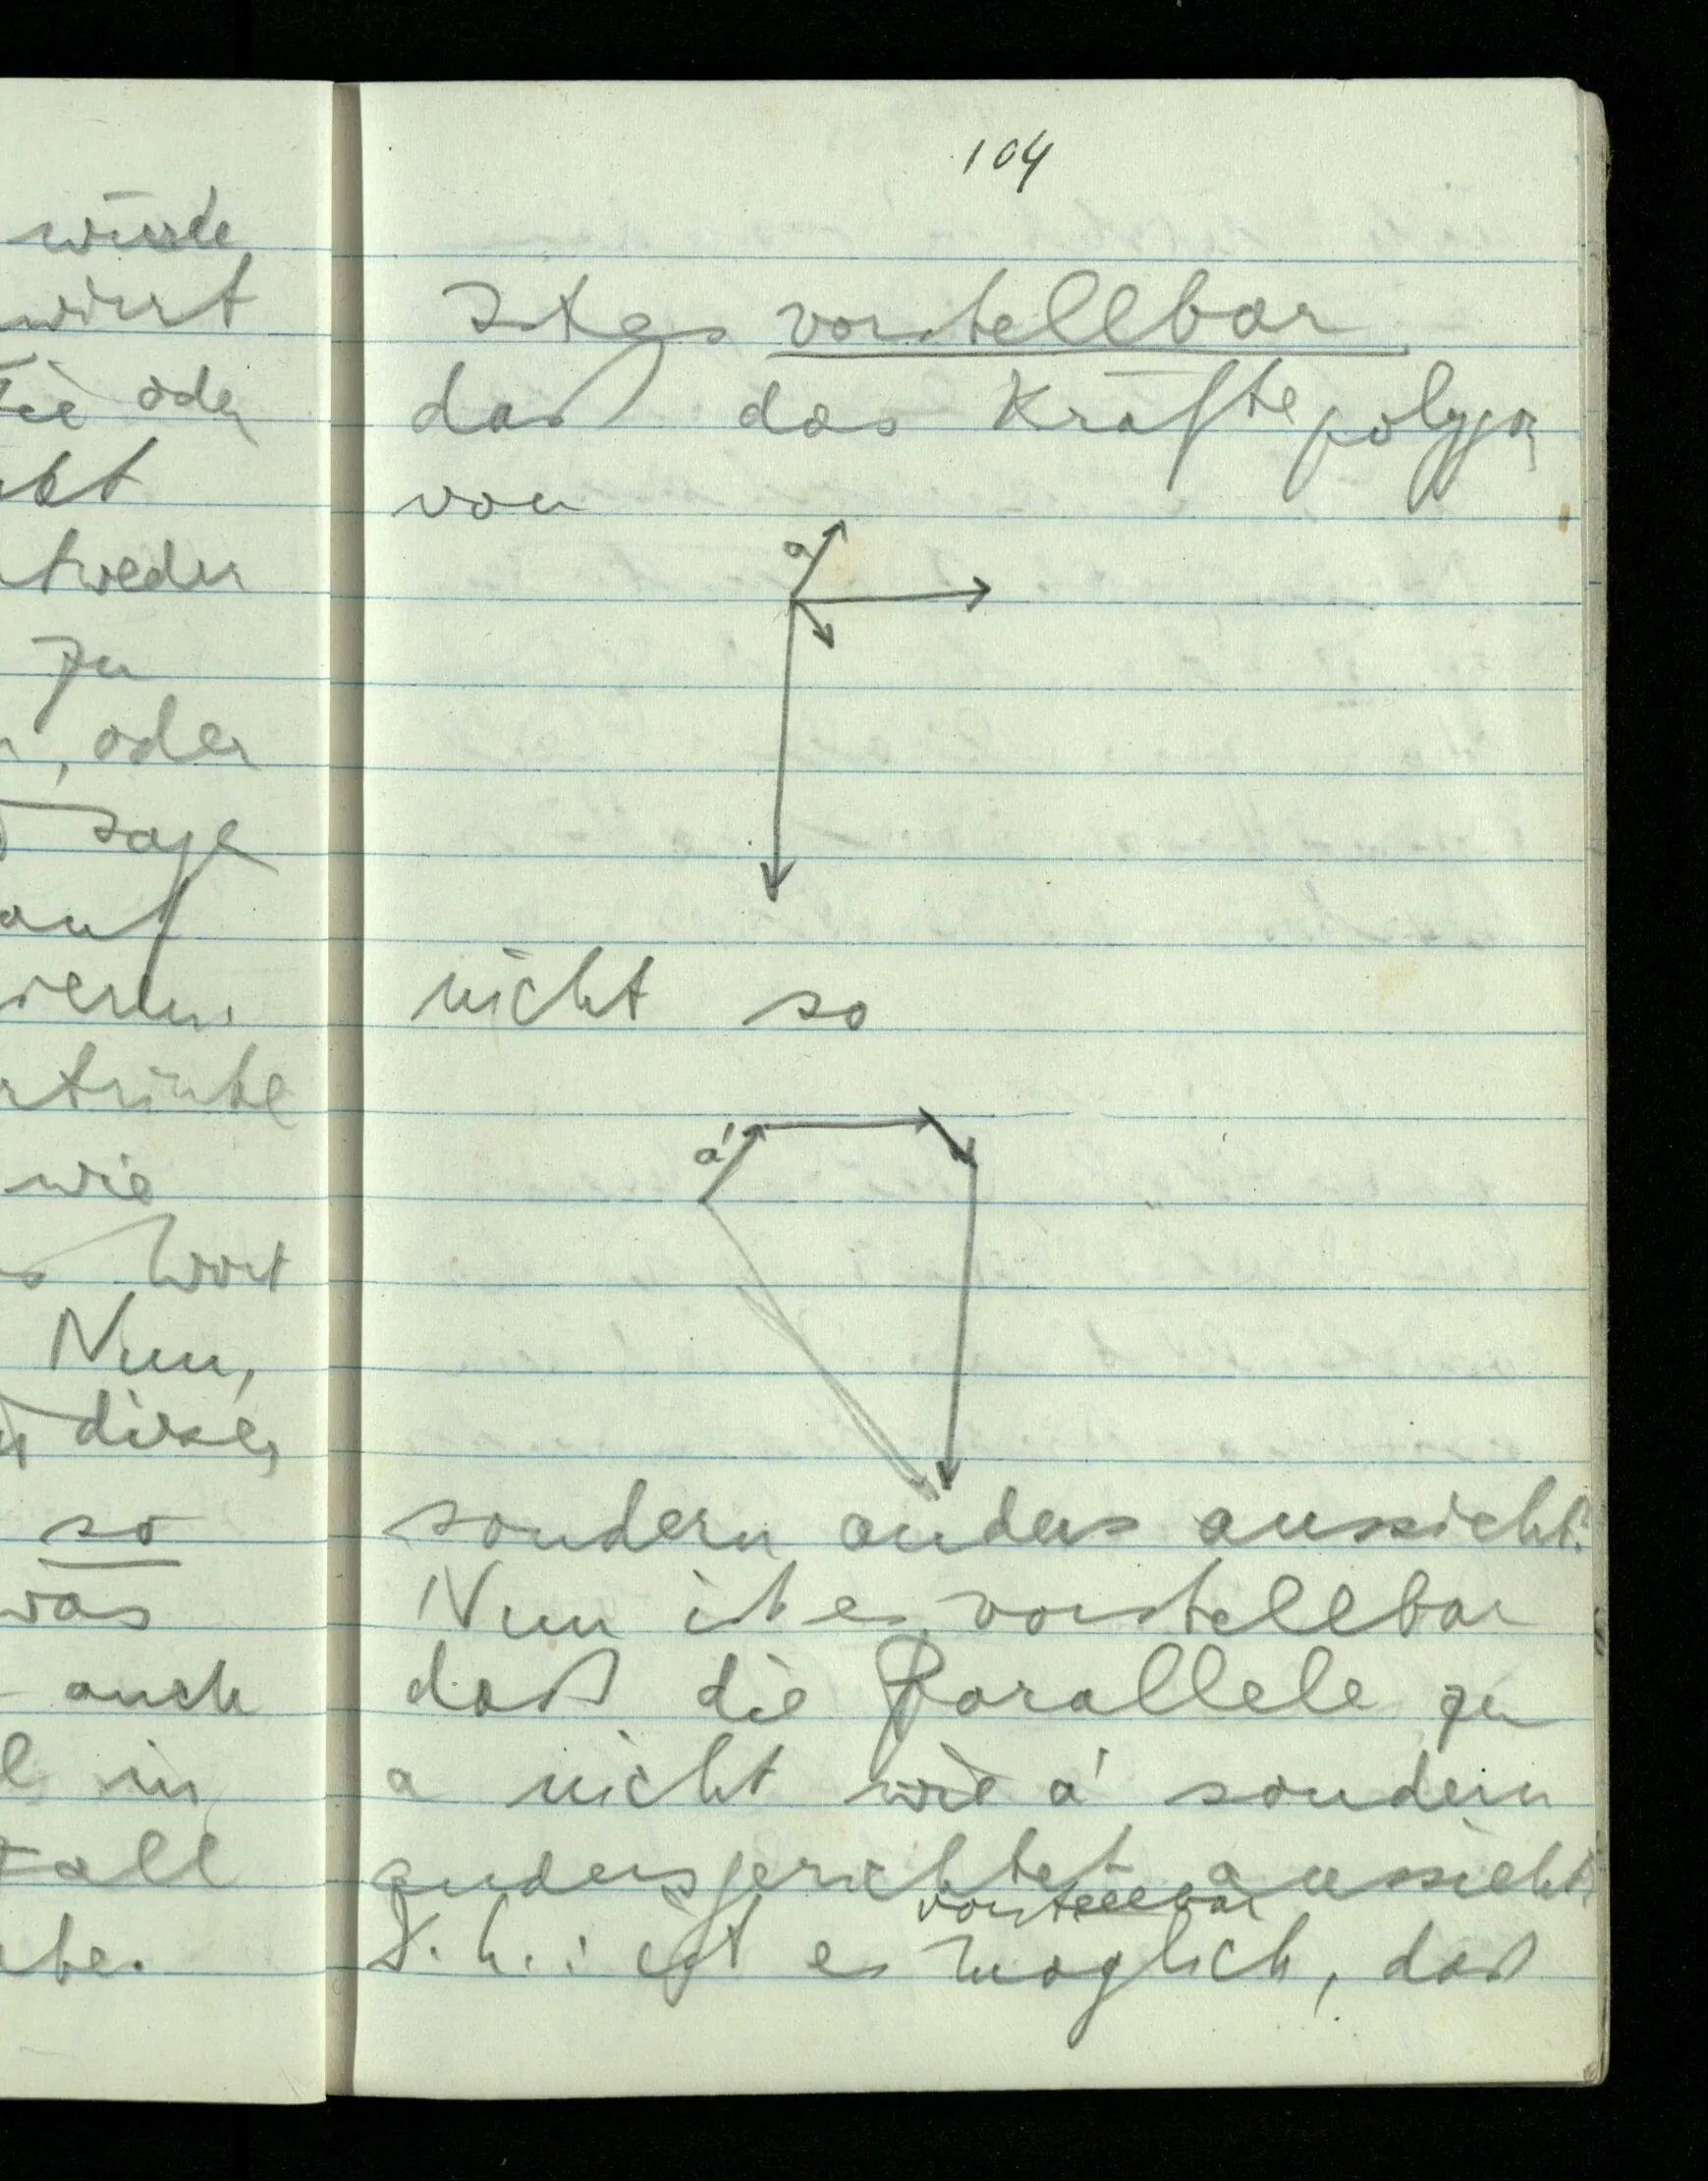 würde
wirst
Sie oder
entweder
zu
, oder
sage
auf
wie
Wort
Nun,
dieser
so
was
auch
in
104
Ist es vorstellbar
daß das Kräftepolygon
von
a
nicht so
a'
sondern anders aussieht?
Nun ist es vorstellbar
daß die Parallele zu
a nicht wie a' sondern
andersgerichtet aussieht?
vorstellbar
D.h.: ist es möglich, daß